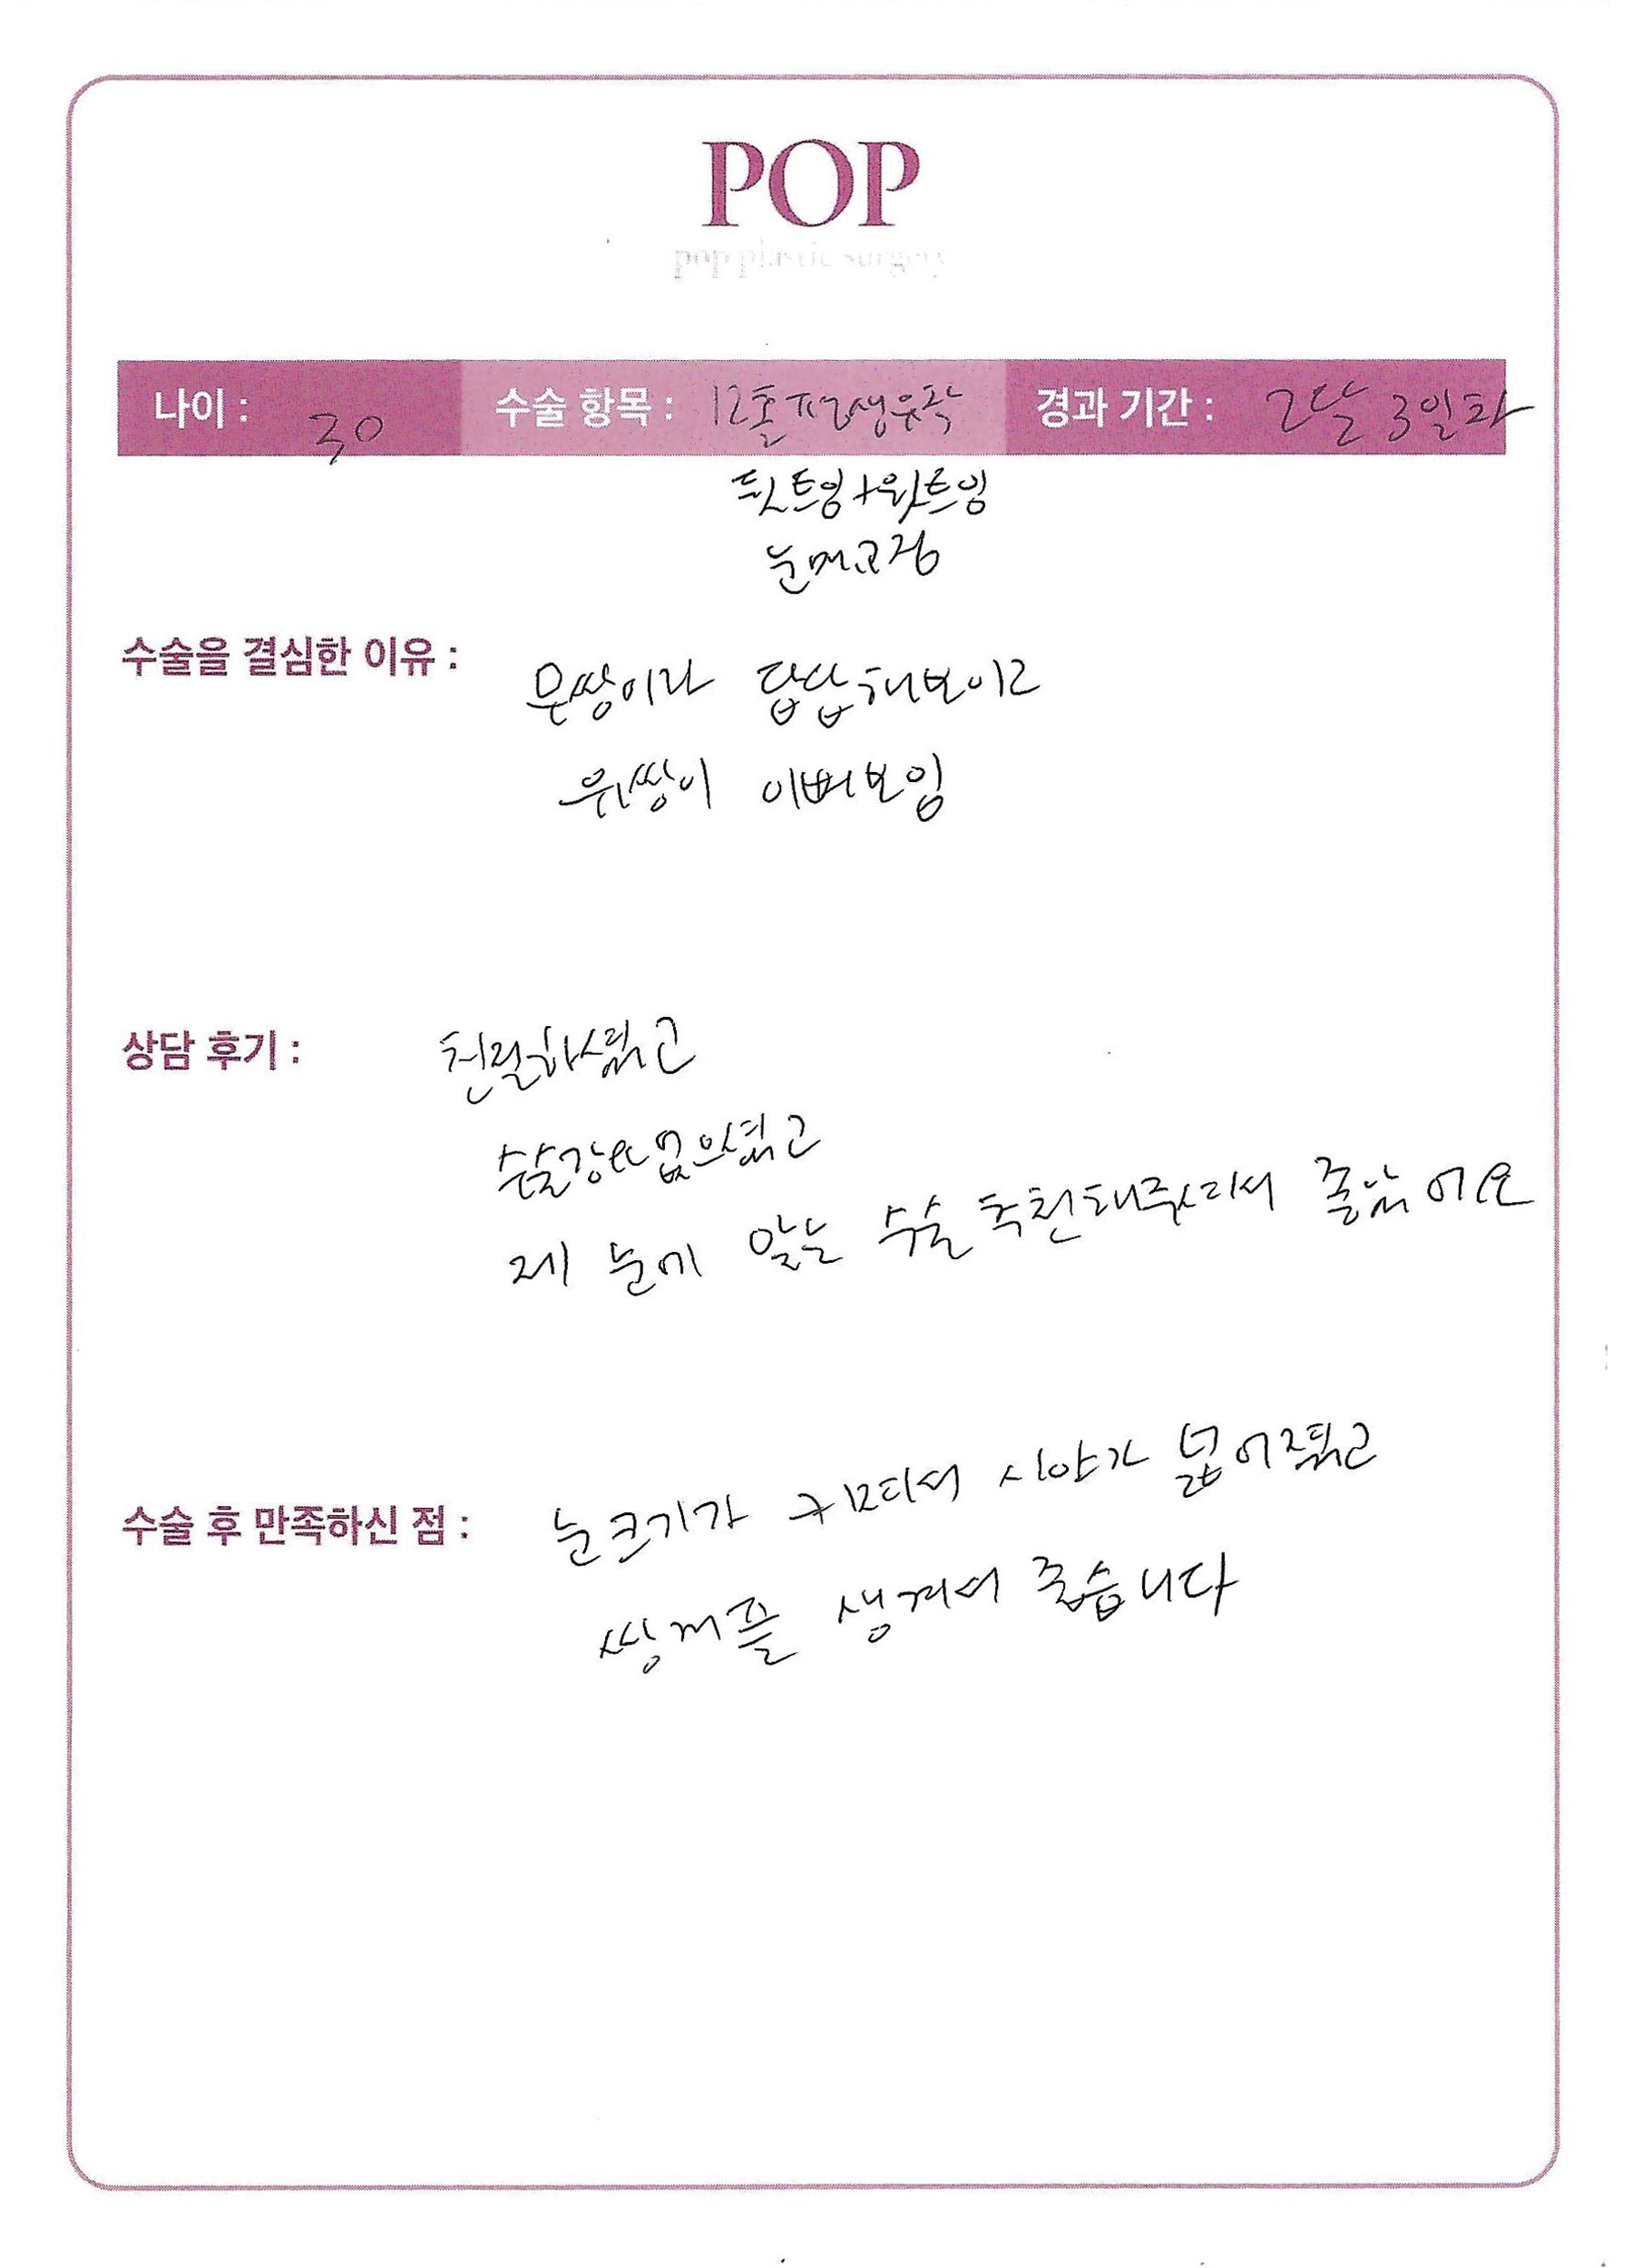 POP
pop plastic surgery
나이 : 30 수술 항목 : 12홀 자연유착 경과 기간 : 2달 3일차
뒷트임+윗트임
눈매교정
수술을 결심한 이유 : 무쌍이라 답답해보이고
유쌍이 이뻐보임
상담 후기 : 친절하셨고
수술강요없으셨고
제 눈에 맞는 수술 추천해주셔서 좋았어요
수술 후 만족하신 점 : 눈크기가 커져서 시야가 넓어졌고
쌍커플 생겨서 좋습니다